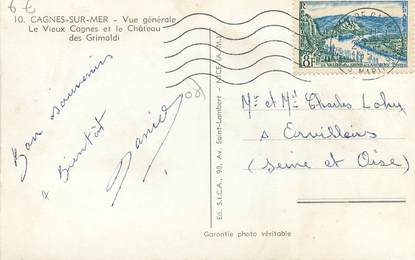 6 €
10. CAGNES-SUR-MER - Vue générale
Le Vieux Cagnes et le Château
des Grimaldi
8F
Bon souvenir
bientôt
Daniel
Ed. S.I.C.A., 98, Av. Saint-Lambert - NICE (A.-M.)
Mr et Me Charles
à Ervillers
(Seine et Oise)
Garantie photo véritable